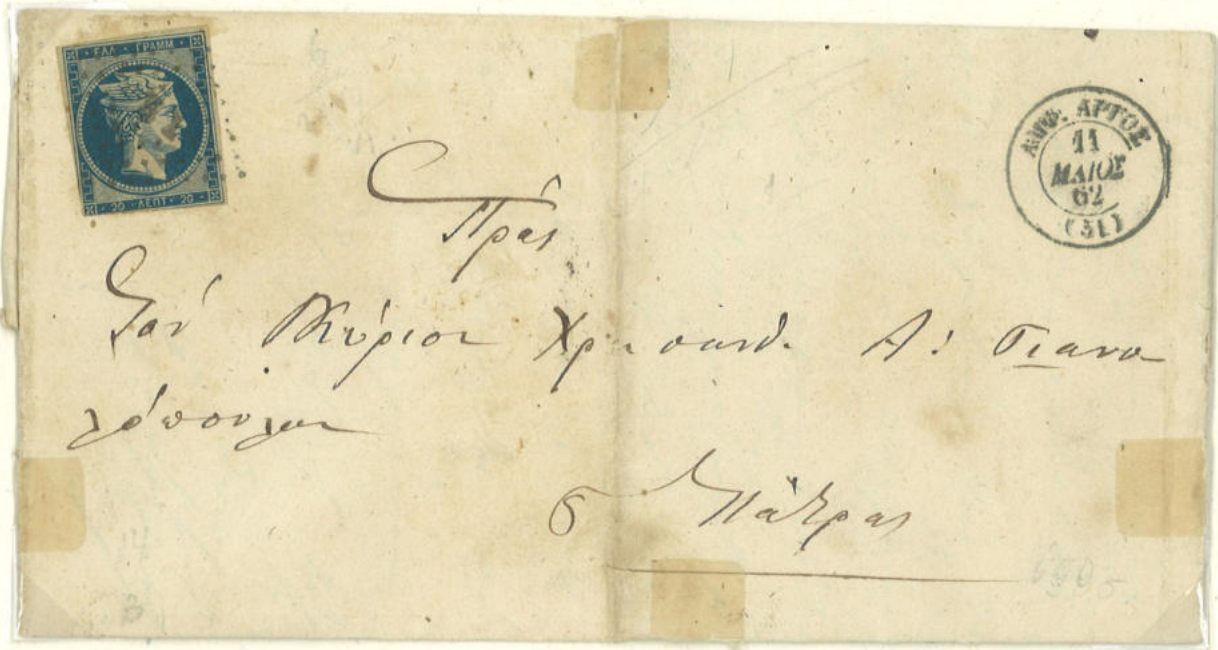 ΕΛΛ · ΓΡΑΜΜ
20 · ΛΕΠΤ · 20
ΑΜΦ. ΑΡΓΟΣ
11
ΜΑΙΟΣ
62
(51)
Πρὸς
Τὸν Κύριον Χρυσανθ. Α:
Πάτρας